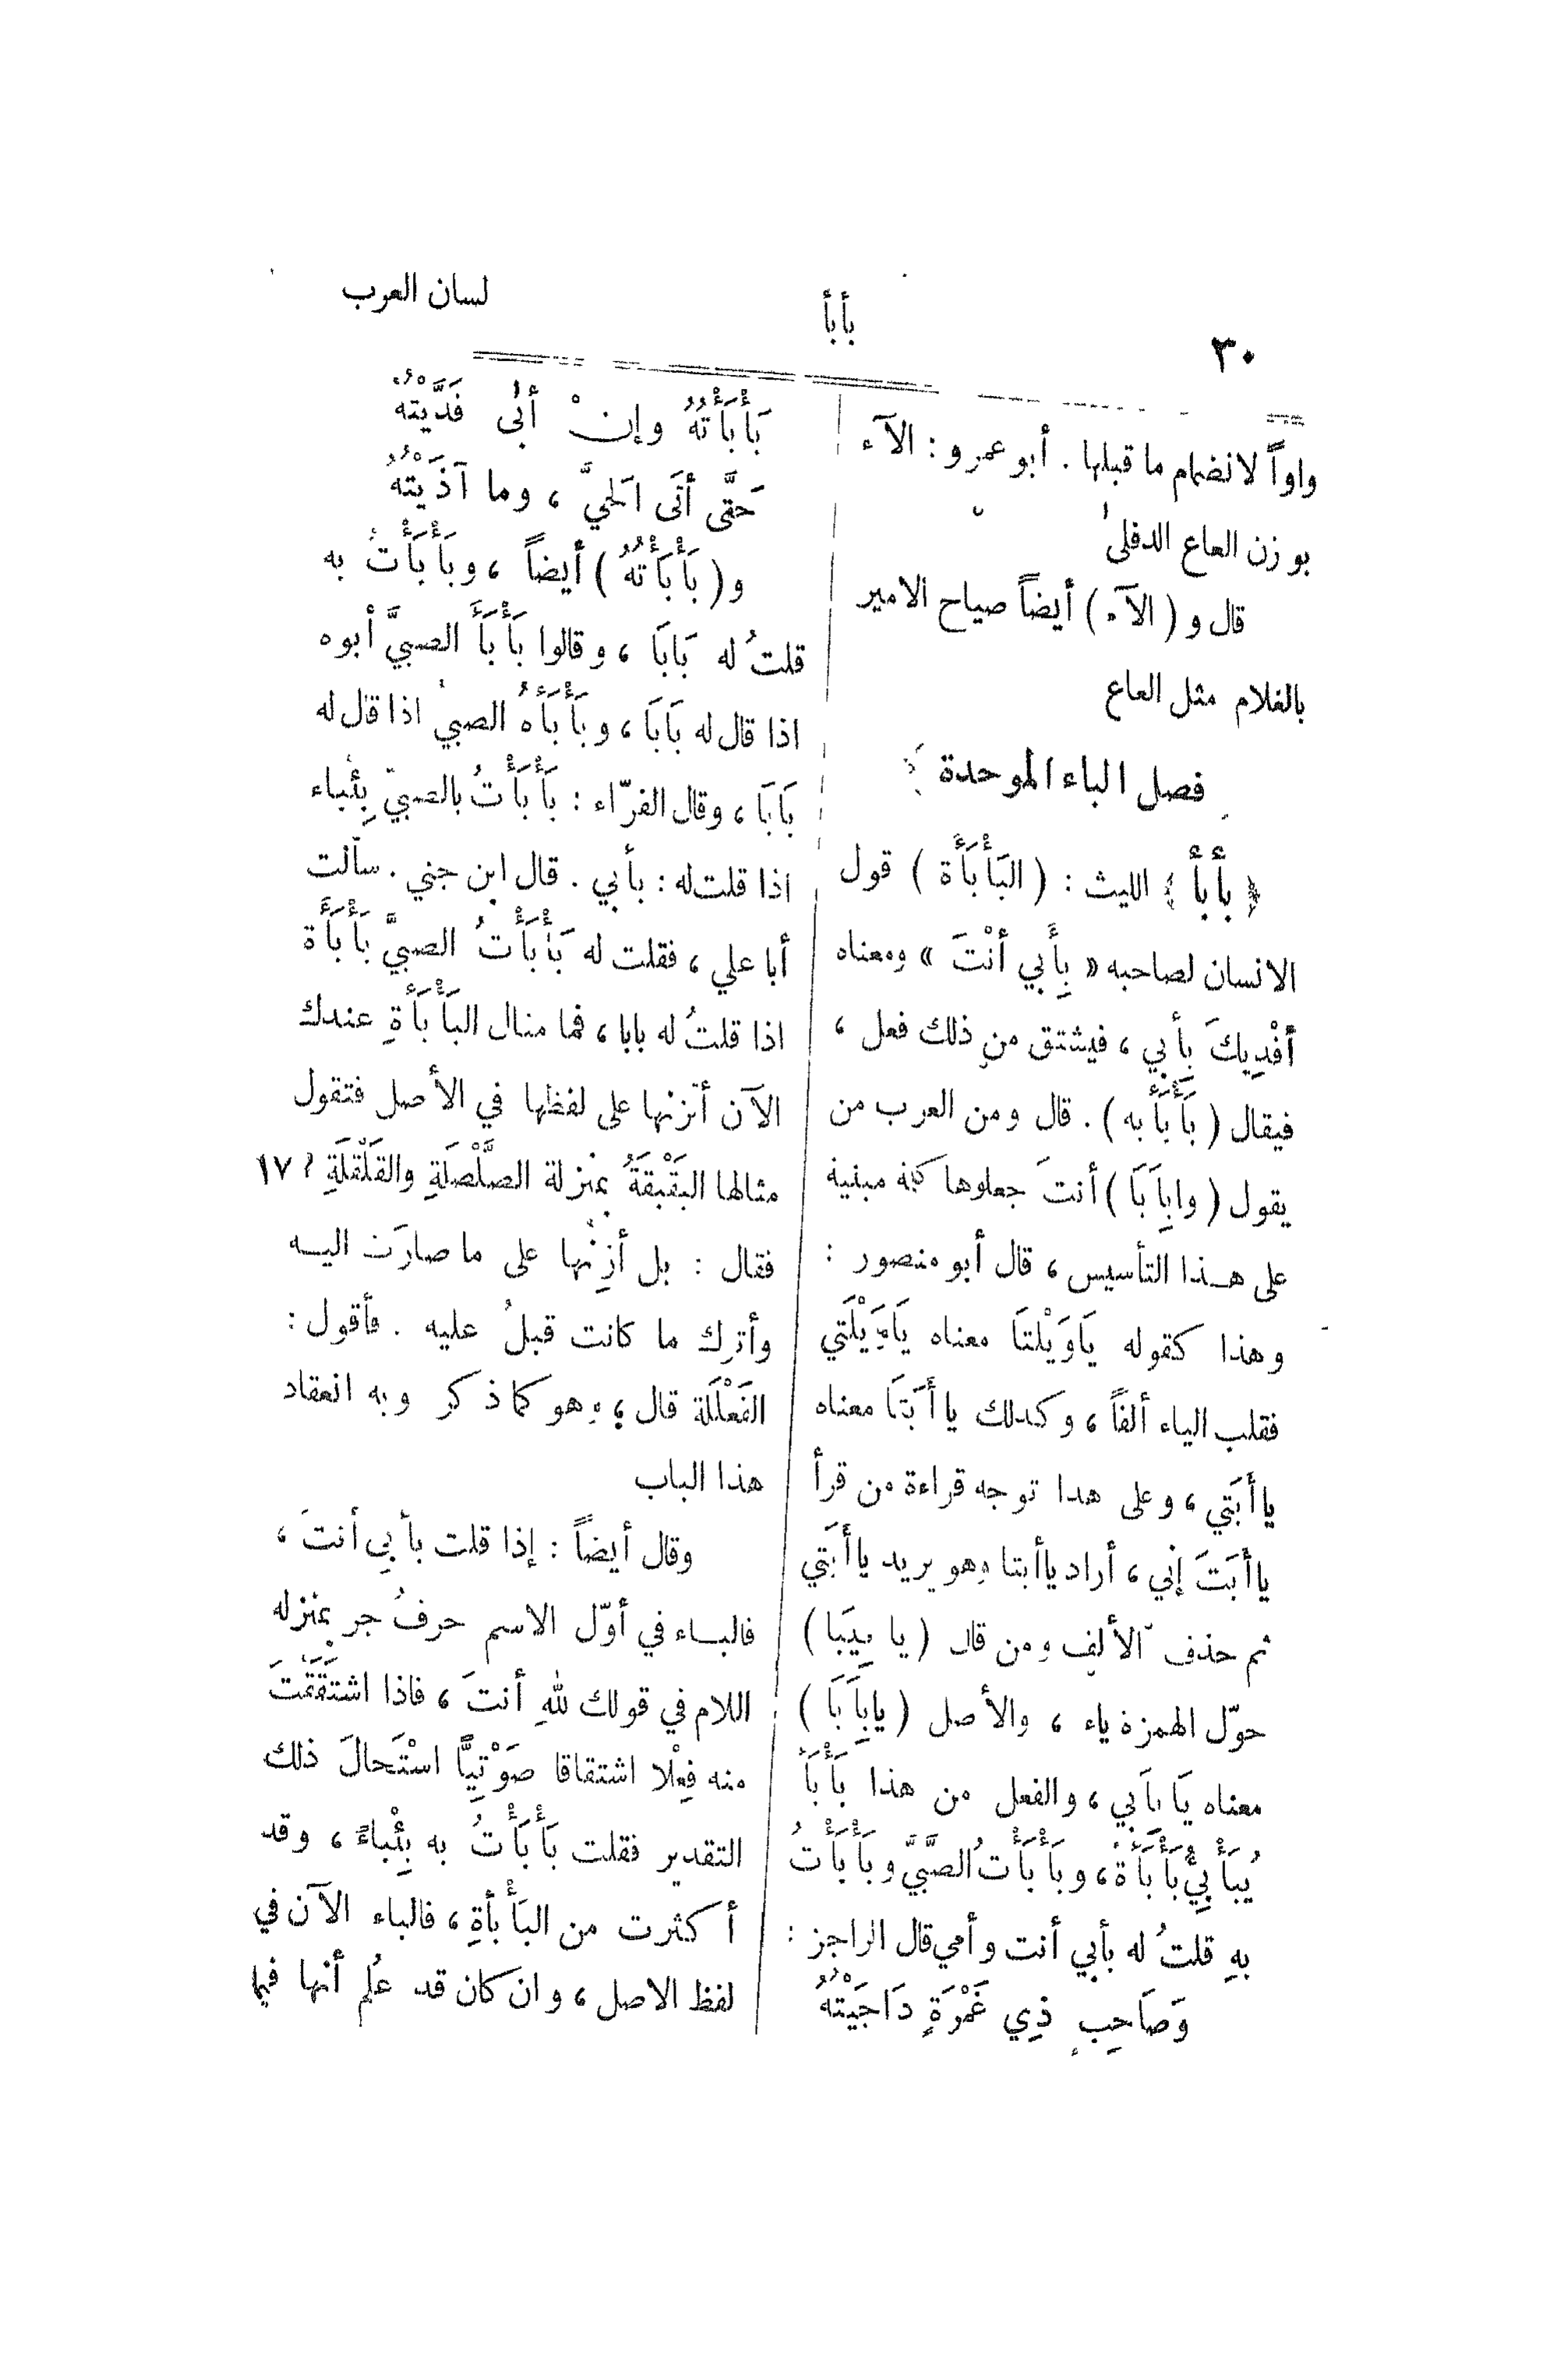 ٣٠
بأبأ
لسان العرب
واواً لانضمام ما قبلها . أبو عمرو : الآء
بوزن العاع الدفلى
قال و ( الآء ) أيضاً صياح الامير
بالغلام مثل العاع
فصل الباء الموحدة
﴿ بأبأ ﴾ الليث : ( البَأْبَأَة ) قول
الانسان لصاحبه « بِأَبي أنْتَ » ومعناه
أفْدِيكَ بأبي ، فيشتق من ذلك فعل ،
فيقال ( بَأْبَأَ به ) . قال ومن العرب من
يقول ( وابِأَبَا ) أنتَ جعلوها كلمة مبنية
على هـذا التأسيس ، قال أبو منصور :
وهذا كقوله يَاوَيْلتَا معناه يَاوَيْلَتي
فقلب الياء ألفاً ، وكذلك ياأَبَتَا معناه
ياأَبَتي ، وعلى هذا توجه قراءة من قرأ
ياأَبَتَ إني ، أراد ياأبتا وهو يريد ياأَبَتي
ثم حذف الألف ومن قال ( يا بِيَبا )
حوّل الهمزة ياء ، والأصل ( يابِأَبَا )
معناه يَا بِأَبي ، والفعل من هذا بَأْبَأَ
يُبَأْبِئُ بَأْبَأَةً ، وبَأْبَأْتُ الصَّبيَّ وبَأْبَأْتُ
بهِ قلتُ له بأبي أنت وأمي قال الراجز :
وَصَاحِبٍ ذِي غَمْرَةٍ دَاجَيْتُهُ
بَأْبَأْتُهُ وإنْ أبَى فَدَّيْتُهُ
حَتَّى أتَى الحَيَّ ، وما آذَيْتُهُ
و ( بَأْبَأْتُهُ ) أيضاً ، وبَأْبَأْتُ به
قلتُ له بَابَا ، وقالوا بَأْبَأَ الصبيَّ أبوه
اذا قال له بَابَا ، وبَأْبَأَهُ الصبيُّ اذا قال له
بَابَا ، وقال الفرّاء : بَأْبَأْتُ بالصبيّ بِئْباء
اذا قلت له : بأبي . قال ابن جني . سألت
أبا علي ، فقلت له بَأْبَأْتُ الصبيَّ بَأْبَأَة
اذا قلتُ له بابا ، فما مثال البَأْبَأَةِ عندك
الآن أتزنها على لفظها في الأصل فتقول
مثالها البَقْبَقَةُ بمنزلة الصَّلْصَلَةِ والقَلْقَلَةِ ؟ ١٧
فقال : بل أزِنُها على ما صارَت اليــه
وأترك ما كانت قبلُ عليه . فأقول :
الفَعْلَلَة قال ؛ وهو كما ذكر وبه انعقاد
هذا الباب
وقال أيضاً : إذا قلت بأبي أنتَ ،
فالبــاء في أوّل الاسم حرفُ جر بمنزله
اللام في قولك للهِ أنتَ ، فاذا اشتَقَقْتَ
منه فِعْلا اشتقاقا صَوْتِيًّا اسْتَحالَ ذلك
التقدير فقلت بَأْبَأْتُ به بِئْباءً ، وقد
أكثرت من البَأْبأةِ ، فالباء الآن في
لفظ الاصل ، وان كان قد عُلم أنها فيما